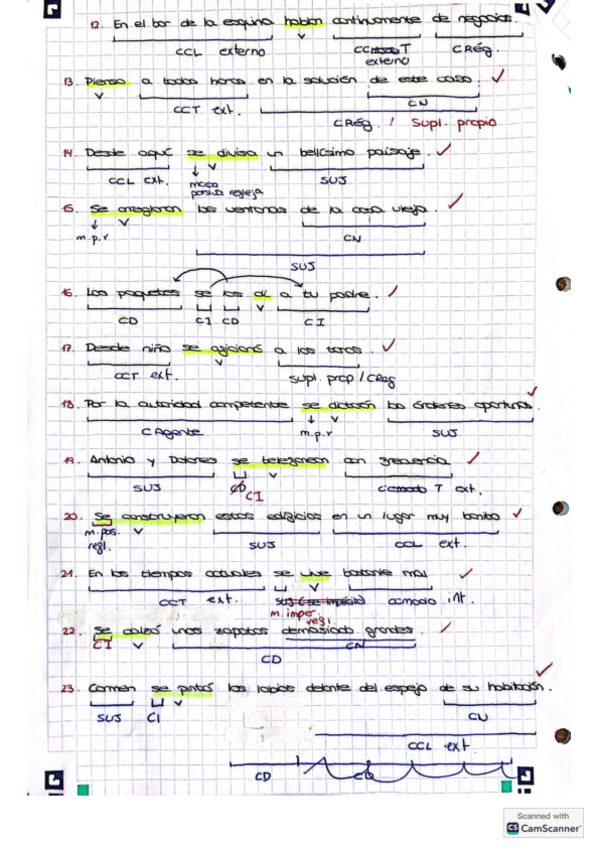 12. En el bar de la esquina hablan continuamente de negocios.
V
CCL externo CC T CRég.
externo
13. Pienso a todas horas en la solución de este caso. ✓
V CCT ext. CN
CRég. / Supl. propio
14. Desde aquí se divisa un bellísimo paisaje. ✓
CCL ext. V SUJ
marca
pasiva refleja
15. Se arreglaron las ventanas de la casa vieja. ✓
m.p.r V CN
SUJ
16. Los paquetes se los di a tu padre. ✓
CD CI CD V CI
17. Desde niño se aficionó a los toros. ✓
CCT ext. V Supl. prop / CReg
18. Por la autoridad competente se dictarón las órdenes oportunas. ✓
C Agente m.p.r V SUJ
19. Antonio y Dolores se telefonean con frecuencia ✓
SUJ CD V T ext.
CI
20. Se construyeron estos edificios en un lugar muy bonito ✓
m. pas. V SUJ CCL ext.
regl.
21. En los tiempos actuales se vive bastante mal ✓
CCT ext. SUJ (se implícito) V ccmodo int.
m. imper.
regl.
22. Se calzó unos zapatos demasiado grandes. ✓
CI V CN
CD
23. Carmen se pintó los labios delante del espejo de su habitación. ✓
SUJ CI V CN
CCL ext.
CD CD
Scanned with
CS CamScanner